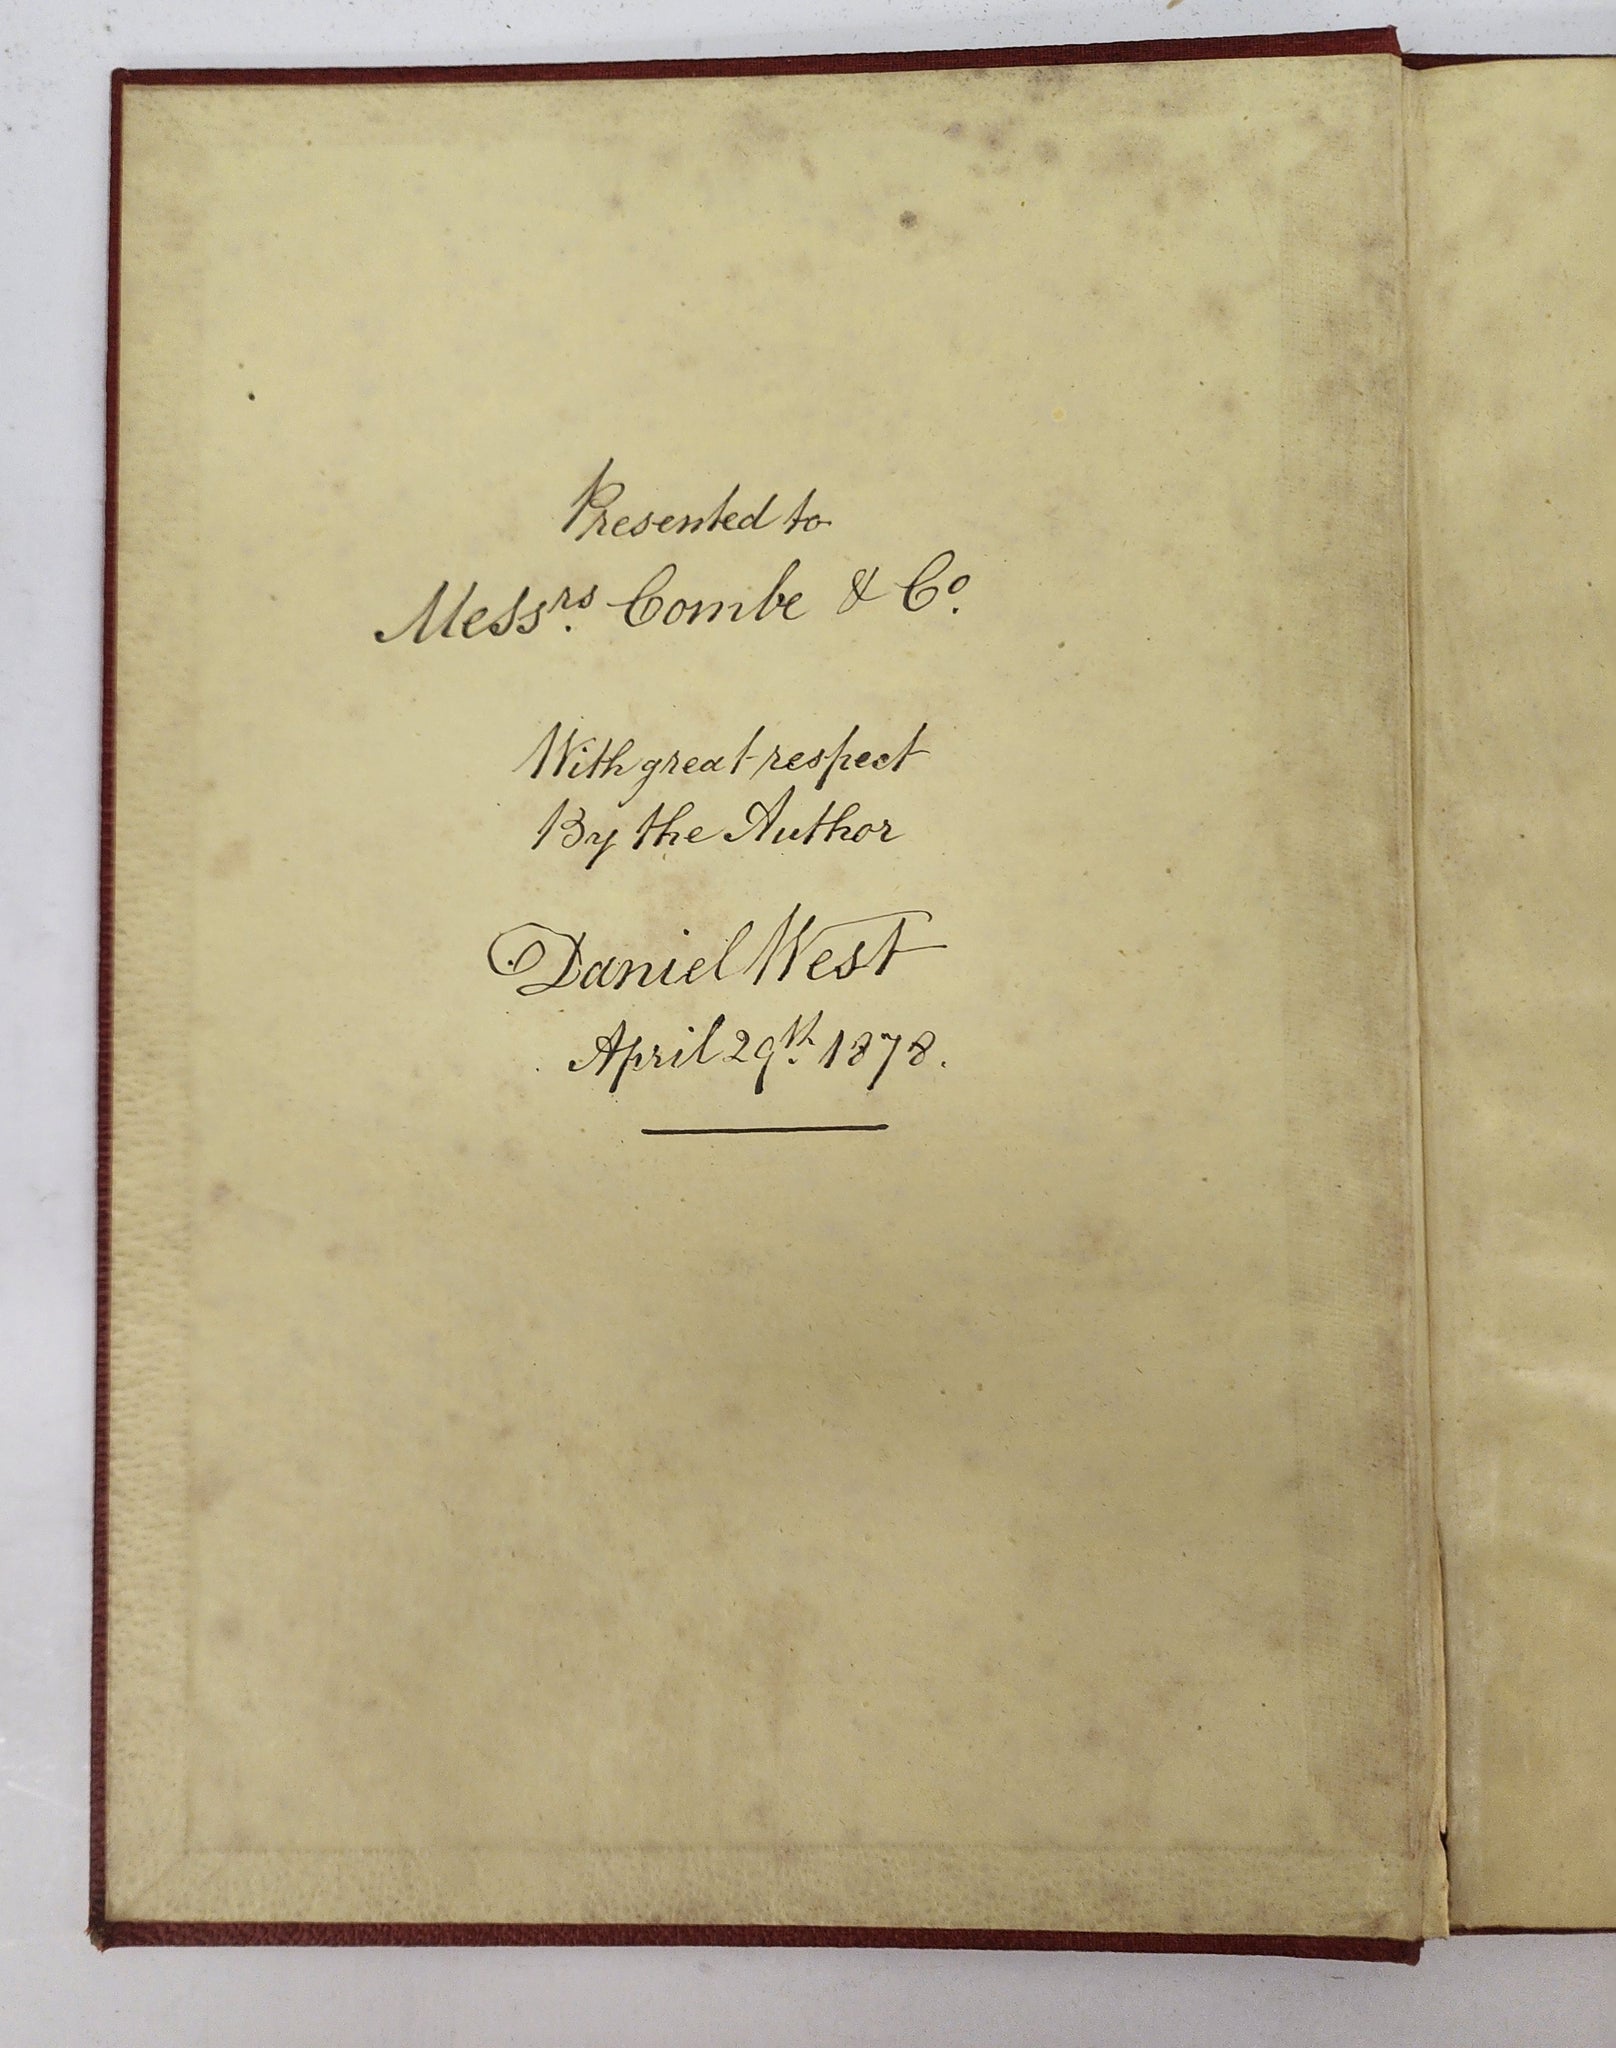 Presented to
Messrs. Combe & Co.
With great respect
By the Author
Daniel West
April 29th. 1878.